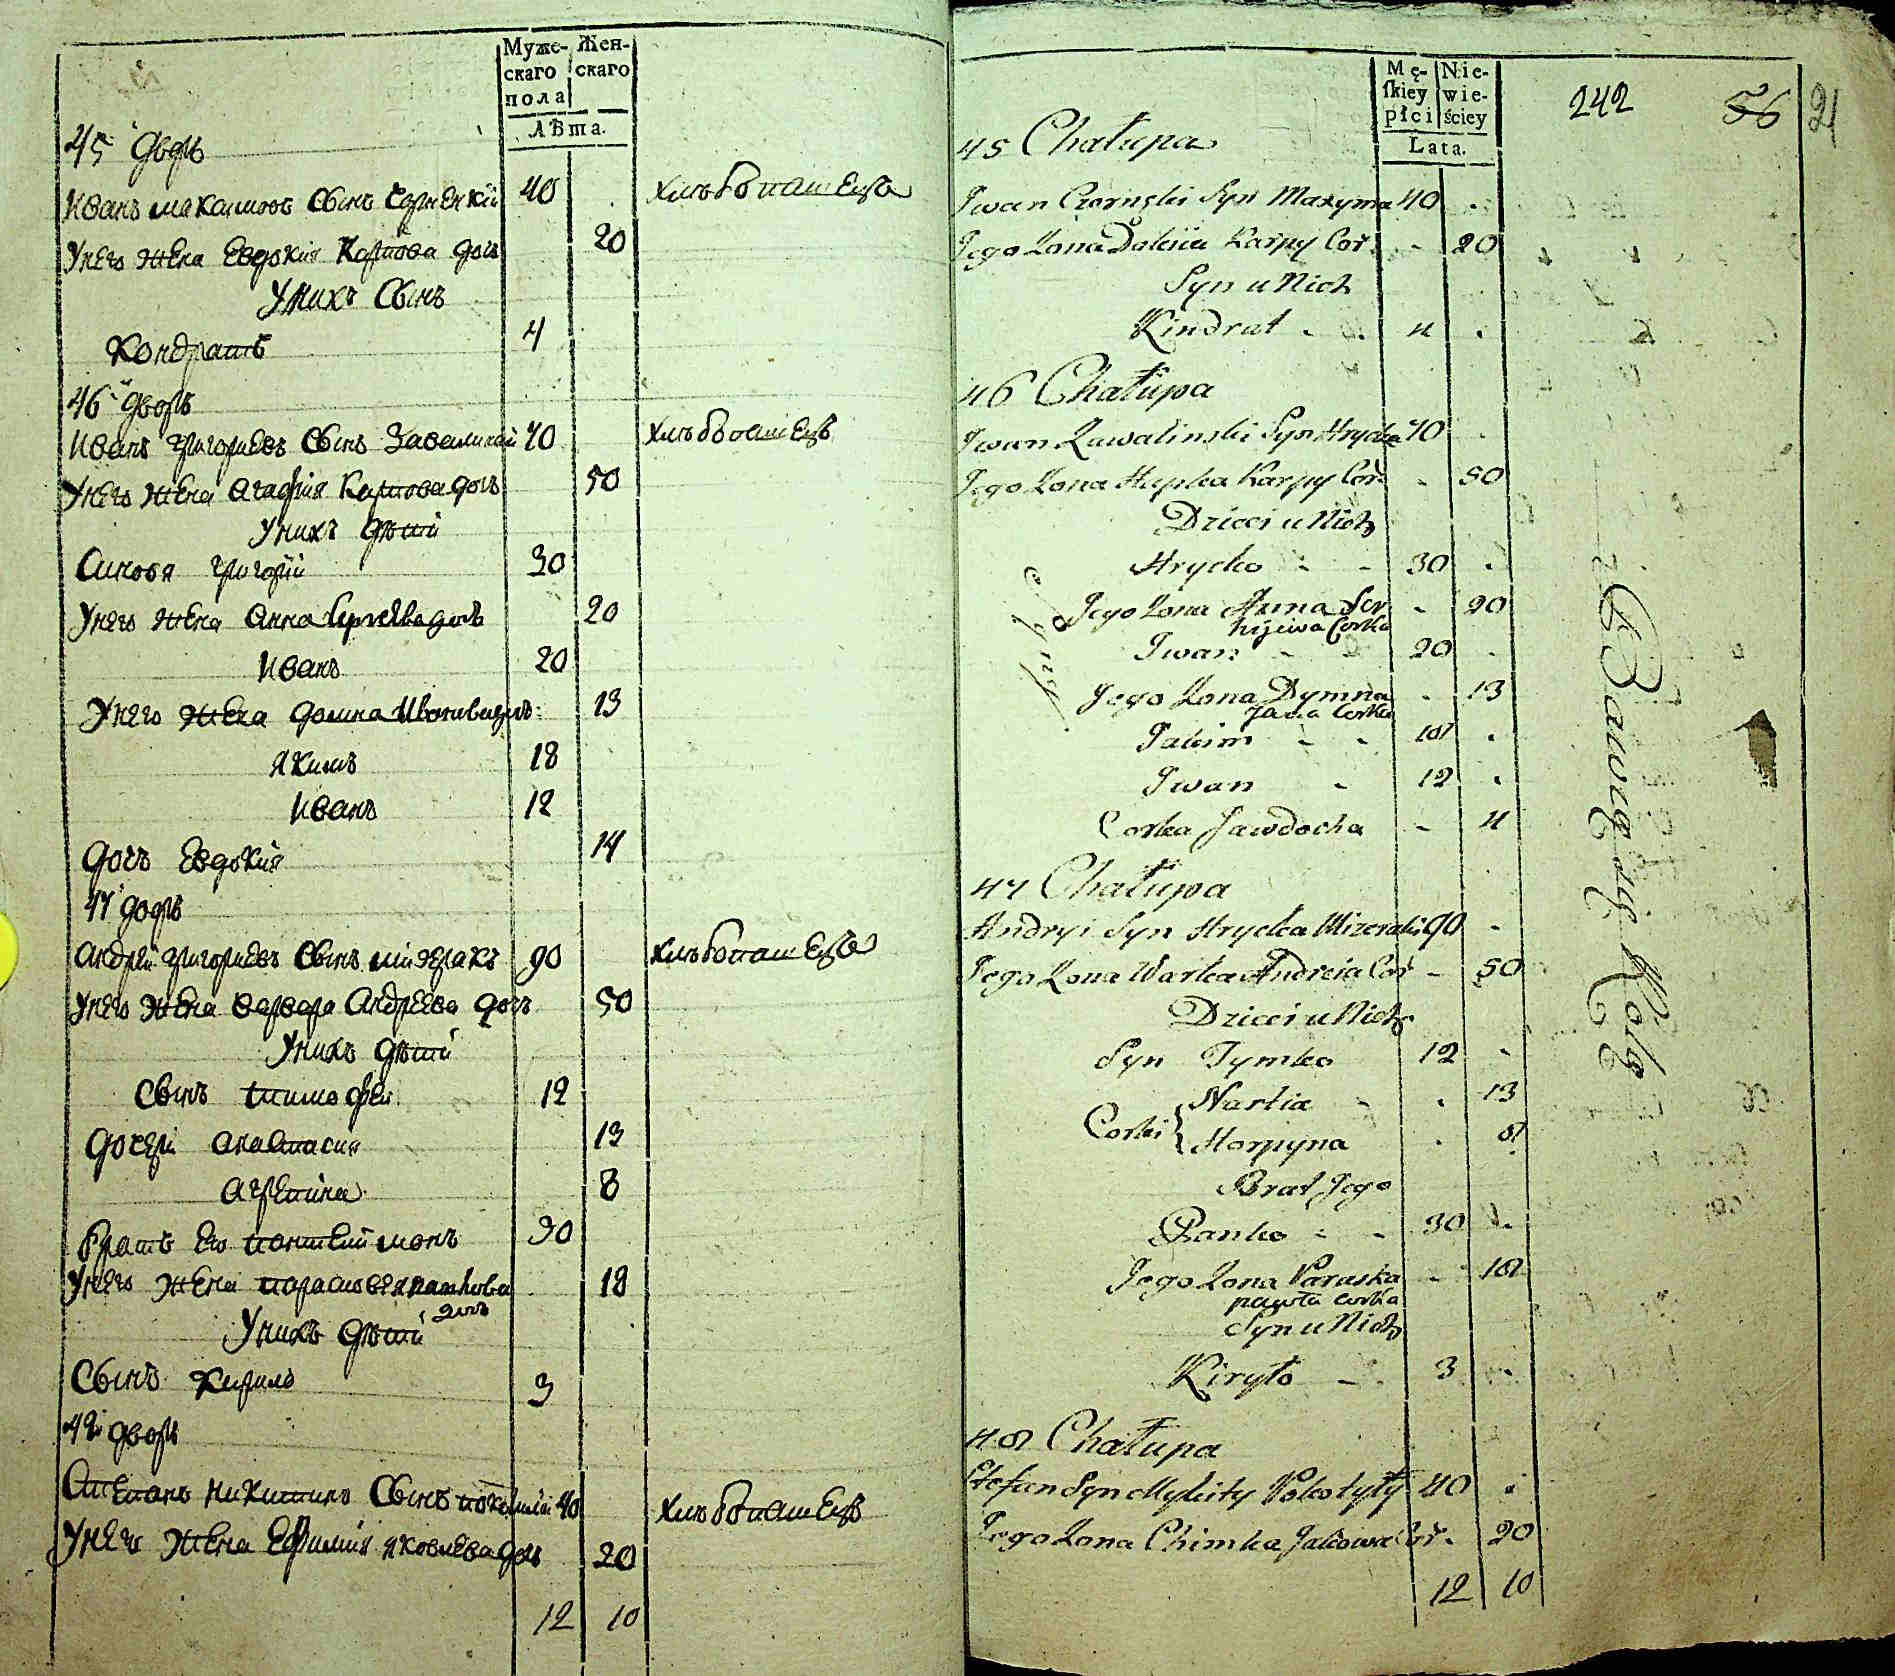 Муже-
скаго
пола
Жен-
скаго
лѣта.
45 дворъ
Иванъ максимовъ Сынъ Чорненкий 40 хлѣбопашецъ
Унего жена Евдокия Карпова дочь 20
Унихъ Сынъ
Кондратъ 4
46 дворъ
Иванъ григориевъ Сынъ Завалинский 70 хлѣбопашецъ
Унего жена агафия Карпова дочь 50
Унихъ дѣти
Синовя григорий 30
Унего жена анна Сергѣева дочь 20
Иванъ 20
Унего жена домна Иванова дочь 13
якимъ 18
Иванъ 12
дочъ Евдокия 14
47 дворъ
андрей григориевъ Сынъ мизеракъ 90 хлѣбопашецъ
Унего жена варвара андреева дочъ 50
Унихъ дѣти
Сынъ тимофей 12
дочери анастасия 13
агрепина 8
братъ Его пантелиймонъ 30
Унего жена парасковея павлова 18
дочь
Унихъ дѣти
Сынъ Кирило 3
48 дворъ
Степанъ никитинъ Сынъ 40 хлѣбопашецъ
Унего жена Ефимия яковлева дочь 20
12 10
Mę-
ſkiey
płci
Nie-
wie-
ściey
Lata.
242 56 21
45 Chałupa
Jwan Czornęki Syn Maxyma 40
Jego Zona Karpy Cor. 20
Syn u Nich
Kindrat 4
46 Chałupa
Jwan Zawalinski Syn Hrycka 70
Jego Zona Hapka Karpy Cor. 50
Dzieci u Nich
Synы
Hrycko 30
Jego Zona Anna Ser 20
hijewa Corka
Jwan 20
Jego Zona Dymna 13
Jana Corka
Jakim 18
Jwan 12
Corka Jawdocha 14
47 Chałupa
Andryi Syn Hrycka Mizerak 90
Jego Zona Warka Andreia Cor 50
Dzieci u Nich
Syn Tymko 12
Corki
Nastia 13
Horpyna 8
Brat Jego
Panko 30
Jego Zona Paraska 18
pawła corka
Syn u Nich
Kiryło 3
48 Chałupa
Stefan Syn Mykity Pokotyły 40
Jego Zona Chimka Jakowa Cor. 20
12 10